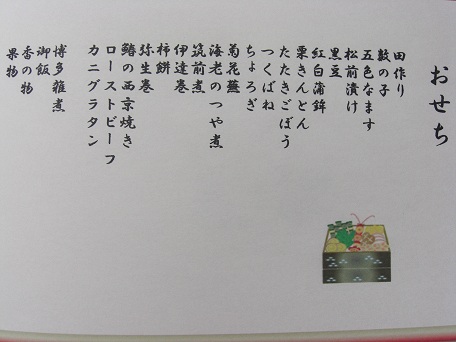 おせち
田作り
数の子
五色なます
松前漬け
黒豆
紅白蒲鉾
栗きんとん
たたきごぼう
つくばね
ちょろぎ
菊花蕪
海老のつや煮
筑前煮
伊達巻
柿餅
弥生巻
鰆の西京焼き
ローストビーフ
カニグラタン
博多雑煮
御飯
香の物
果物